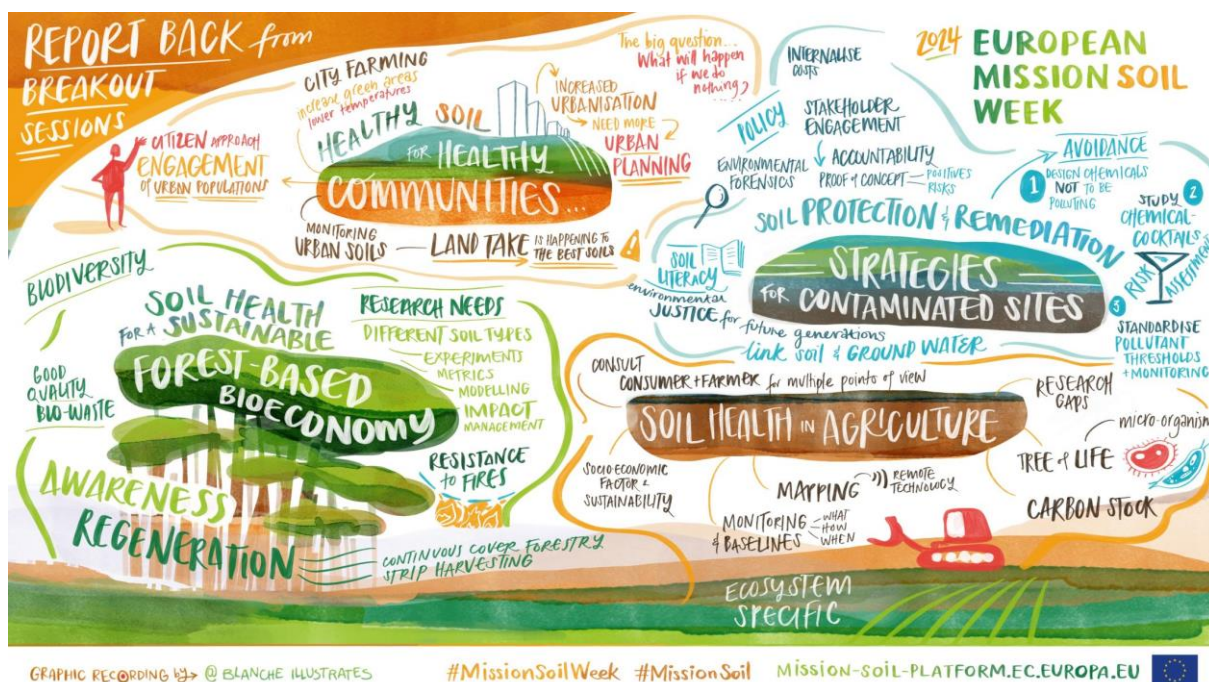 REPORT BACK from
BREAKOUT
SESSIONS
2024 EUROPEAN
MISSION SOIL
WEEK
CITY FARMING
increase green areas
lower temperatures
HEALTHY SOIL
for HEALTHY
COMMUNITIES...
INCREASED
URBANISATION
NEED MORE
URBAN
PLANNING
The big question...
What will happen
if we do
nothing?
CITIZEN APPROACH
ENGAGEMENT
of URBAN POPULATIONS
MONITORING
URBAN SOILS
LAND TAKE IS HAPPENING TO
THE BEST SOILS
!
POLICY
INTERNALISE
COSTS
STAKEHOLDER
ENGAGEMENT
ACCOUNTABILITY
PROOF of CONCEPT
POSITIVES
RISKS
ENVIRONMENTAL
FORENSICS
AVOIDANCE
1 DESIGN CHEMICALS
NOT TO BE
POLLUTING
2
STUDY
CHEMICAL-
COCKTAILS
RISK
ASSESSMENT
3
STANDARDISE
POLLUTANT
THRESHOLDS
+ MONITORING
SOIL PROTECTION & REMEDIATION
STRATEGIES
for CONTAMINATED SITES
SOIL
LITERACY
environmental
JUSTICE for future generations
link soil & GROUND WATER
BIODIVERSITY
SOIL HEALTH
FOR A SUSTAINABLE
FOREST-BASED
BIOECONOMY
GOOD
QUALITY
BIO-WASTE
RESEARCH NEEDS
DIFFERENT SOIL TYPES
EXPERIMENTS
METRICS
MODELLING
IMPACT
MANAGEMENT
RESISTANCE
to FIRES
AWARENESS
REGENERATION
CONTINUOUS COVER FORESTRY
STRIP HARVESTING
CONSULT
CONSUMER + FARMER for multiple points of view
SOIL HEALTH IN AGRICULTURE
SOCIO-ECONOMIC
FACTOR &
SUSTAINABILITY
MAPPING
REMOTE
TECHNOLOGY
MONITORING
& BASELINES
WHAT
HOW
WHEN
RESEARCH
GAPS
micro-organism
TREE of LIFE
CARBON STOCK
ECOSYSTEM
SPECIFIC
GRAPHIC RECORDING by @ BLANCHE ILLUSTRATES
#MissionSoilWeek #MissionSoil
MISSION-SOIL-PLATFORM.EC.EUROPA.EU